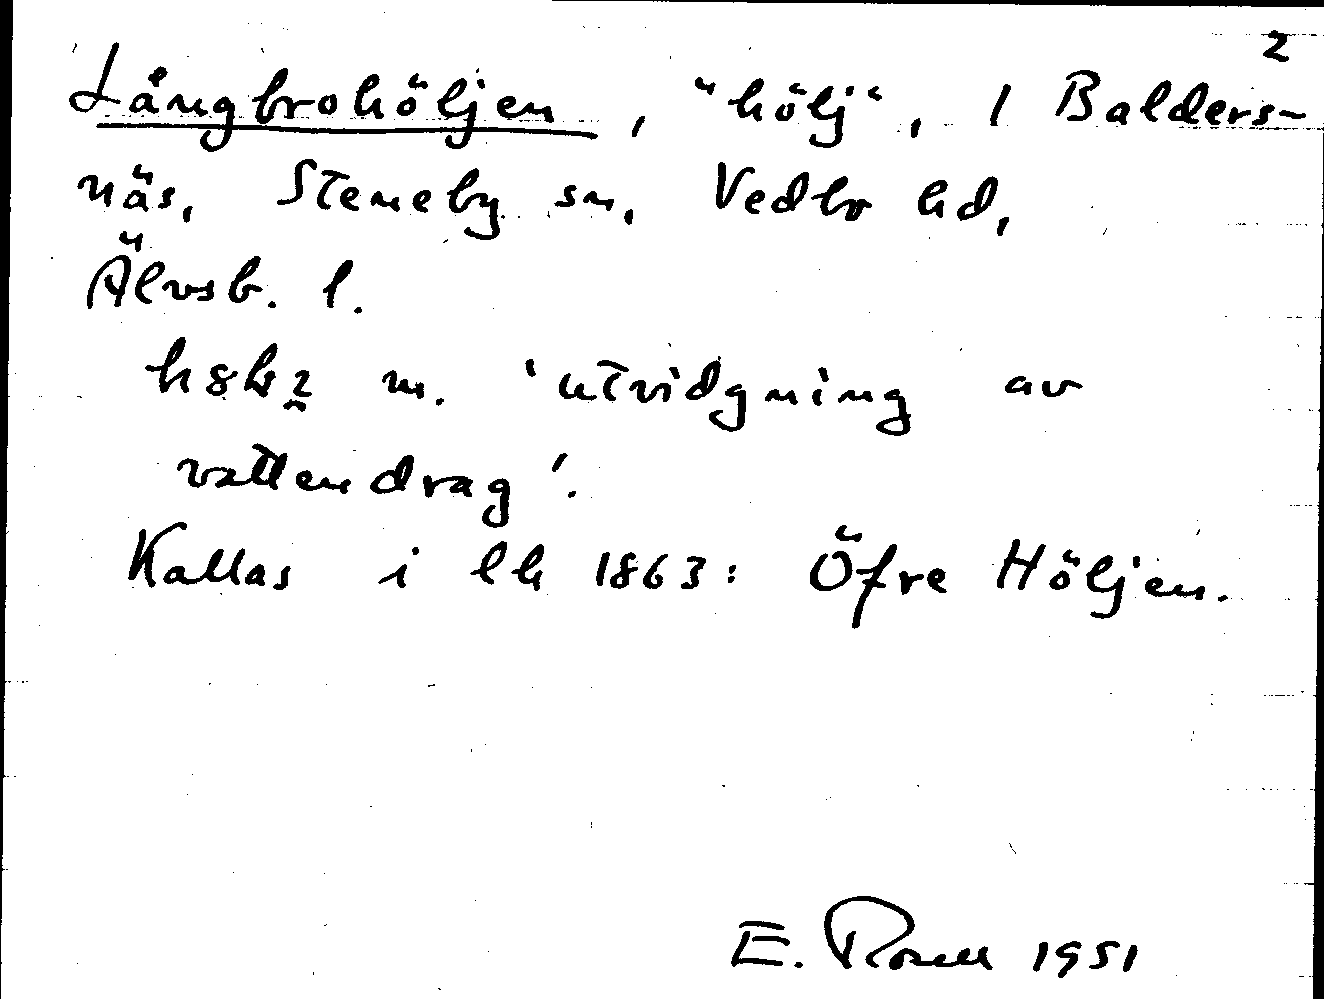 2
Långbrohöljen, "hölj", 1 Balders-
näs, Steneby sn, Vedbo hd,
Älvsb. l.
m. 'utvidgning av
vattendrag'.
Kallas i lh 1863: Öfre Höljen.
E. Rosell 1951